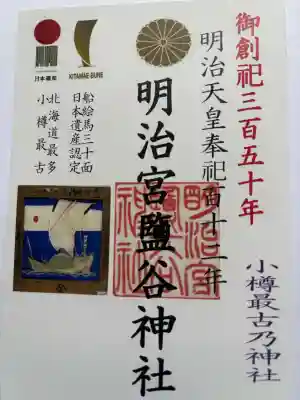 御創祀三百五十年
明治天皇奉祀百十二年
小樽最古乃神社
明治宮鹽谷神社
明治宮鹽谷神社
日本遺産
KITAMAE-BUNE
船絵馬三十面
日本遺産認定
北海道最多
小樽最古